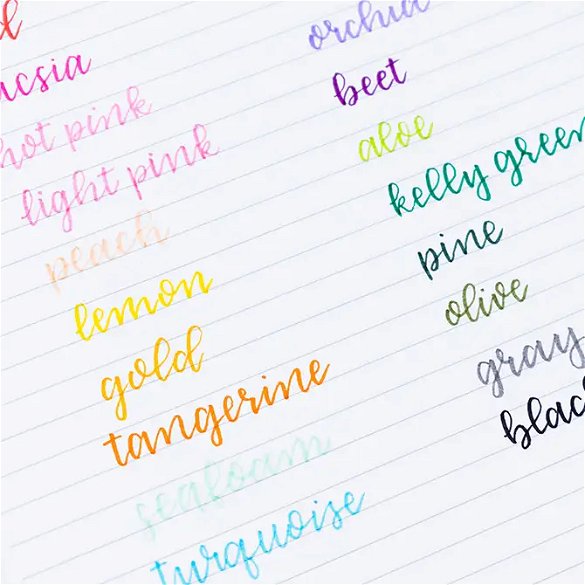 hot pink
light pink
peach
lemon
gold
tangerine
seafoam
turquoise
orchid
beet
aloe
kelly green
pine
olive
gray
black